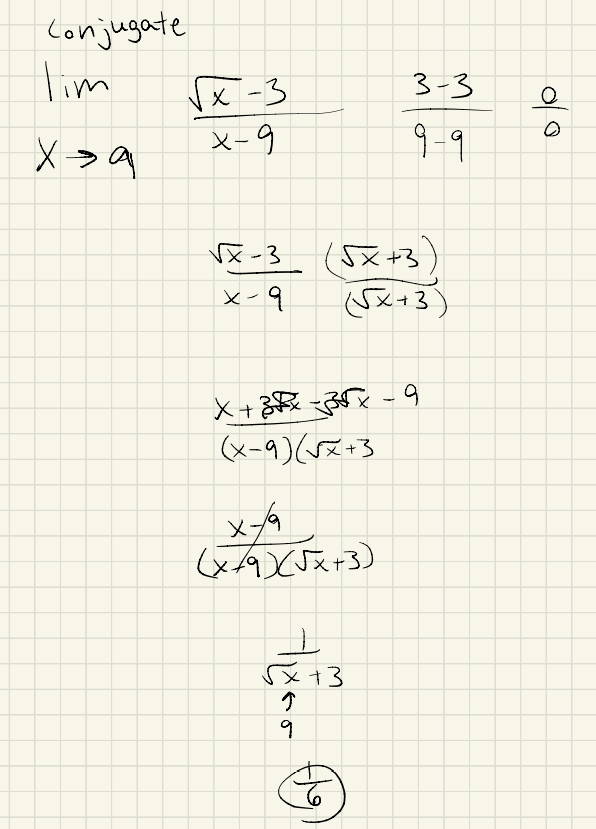 conjugate
lim x→9 (√x - 3)/(x - 9) (3-3)/(9-9) 0/0
(√x - 3)/(x - 9) (√x + 3)/(√x + 3)
(x + 3√x - 3√x - 9)/((x-9)(√x+3
(x-9)/((x-9)(√x+3))
1/(√x + 3)
↑
9
1/6